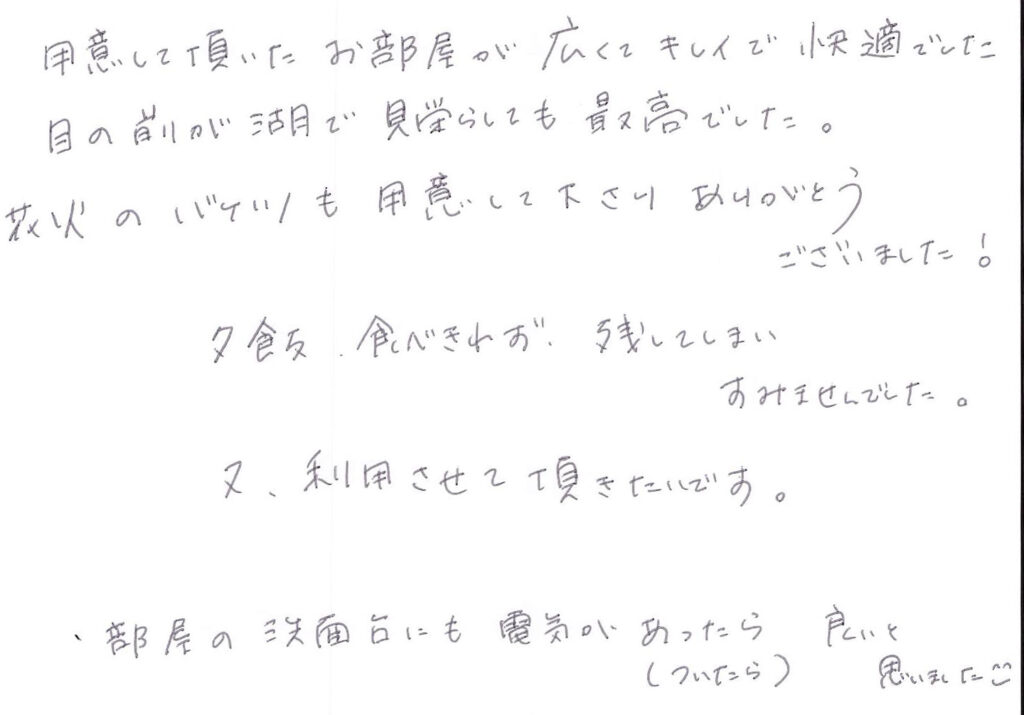 用意して頂いた お部屋が 広くて キレイで 快適でした
目の前が 湖で 見栄らしても 最高でした。
花火 の バケツも 用意して下さり ありがとう
ございました!
夕飯、食べきれず、残してしまい
すみませんでした。
又、利用させて頂きたいです。
、部屋の 洗面台にも 電気が あったら 良いと
(ついたら) 思いました